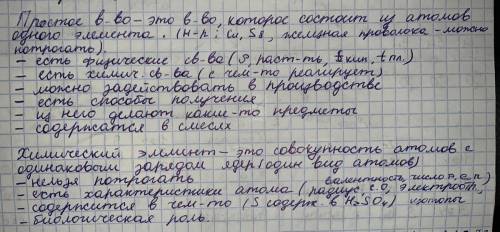 Простое в-во – это в-во, которое состоит из атомов
одного элемента. (Н-р: Cu, S8, железная проволока - можно
потрогать).
- есть физические св-ва (ρ, раст-ть, t кип, t пл.)
- есть химич. св-ва (с чем-то реагирует)
- можно задействовать в производстве
- есть способы получения
- из него делают какие-то предметы
- содержатся в смесях
Химический элемент – это совокупность атомов с
одинаковым зарядом ядер (один вид атомов)
- нельзя потрогать валентность, число p, e, n)
- есть характеристики атома (радиус, с.о, электроотр,
- содержится в чем-то (S содерж. в H2SO4) изотопы
- биологическая роль.